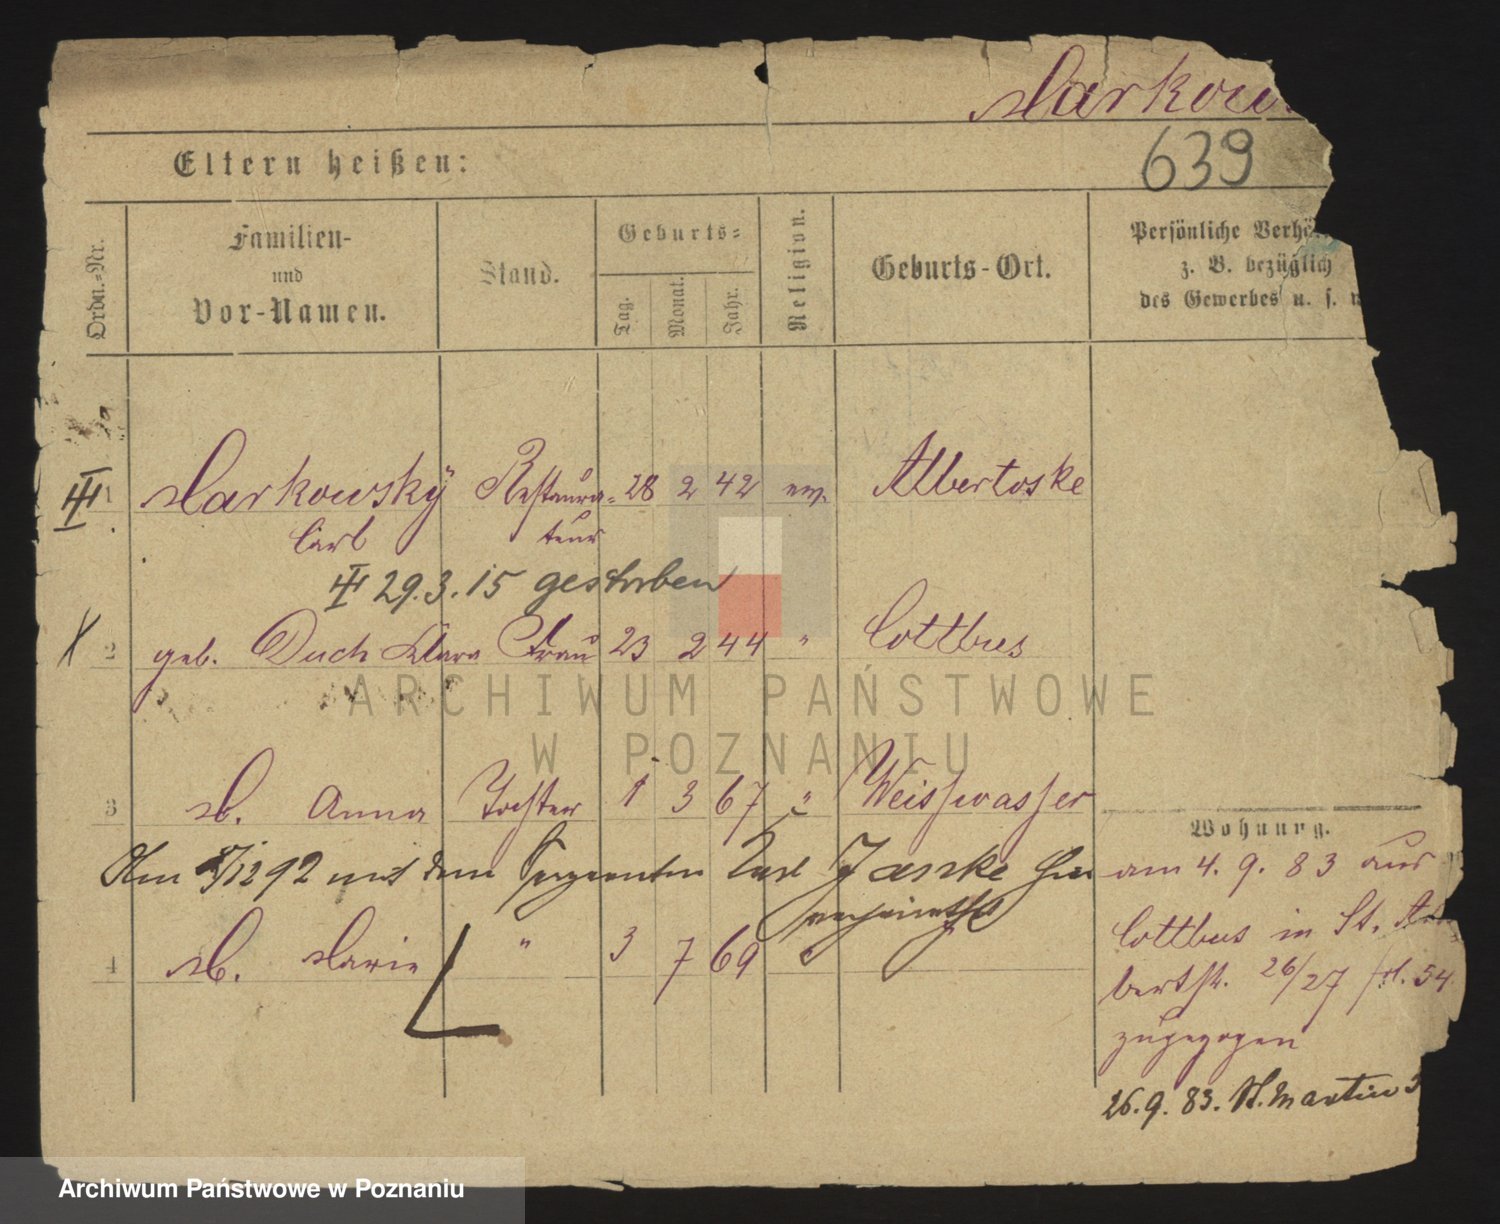 Markows
639
Eltern heißen:
Ordn.-Nr.
Familien-
und
Vor-Namen.
Stand.
Geburts-
Tag.
Monat.
Jahr.
Religion.
Geburts-Ort.
Persönliche Verhä
z. B. bezüglich
des Gewerbes u. s. w
1 Markowsky Restaura- 28 2 42 ev. Albertoske
Carl teur
III 29.3.15 gestorben
2 geb. Duch Klara Frau 23 2 44 " Cottbus
ARCHIWUM PAŃSTWOWE
W POZNANIU
3 M. Anna Tochter 1 3 67 " Weisswasser
Wohnung.
Am 12 92 mit dem Sergeanten Karl Janske hier
verheirathet
4 M. Marie " 3 7 69 "
am 4. 9. 83 aus
Cottbus in St. Adal
bertstr. 26/27 fol. 54
zugezogen
26. 9. 83. St. Martin 3
Archiwum Państwowe w Poznaniu